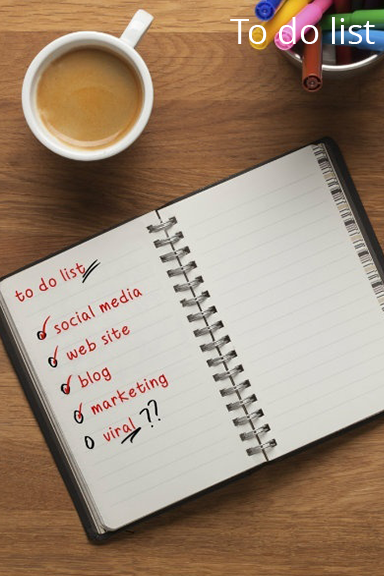 To do list
to do list
social media
web site
blog
marketing
viral ??